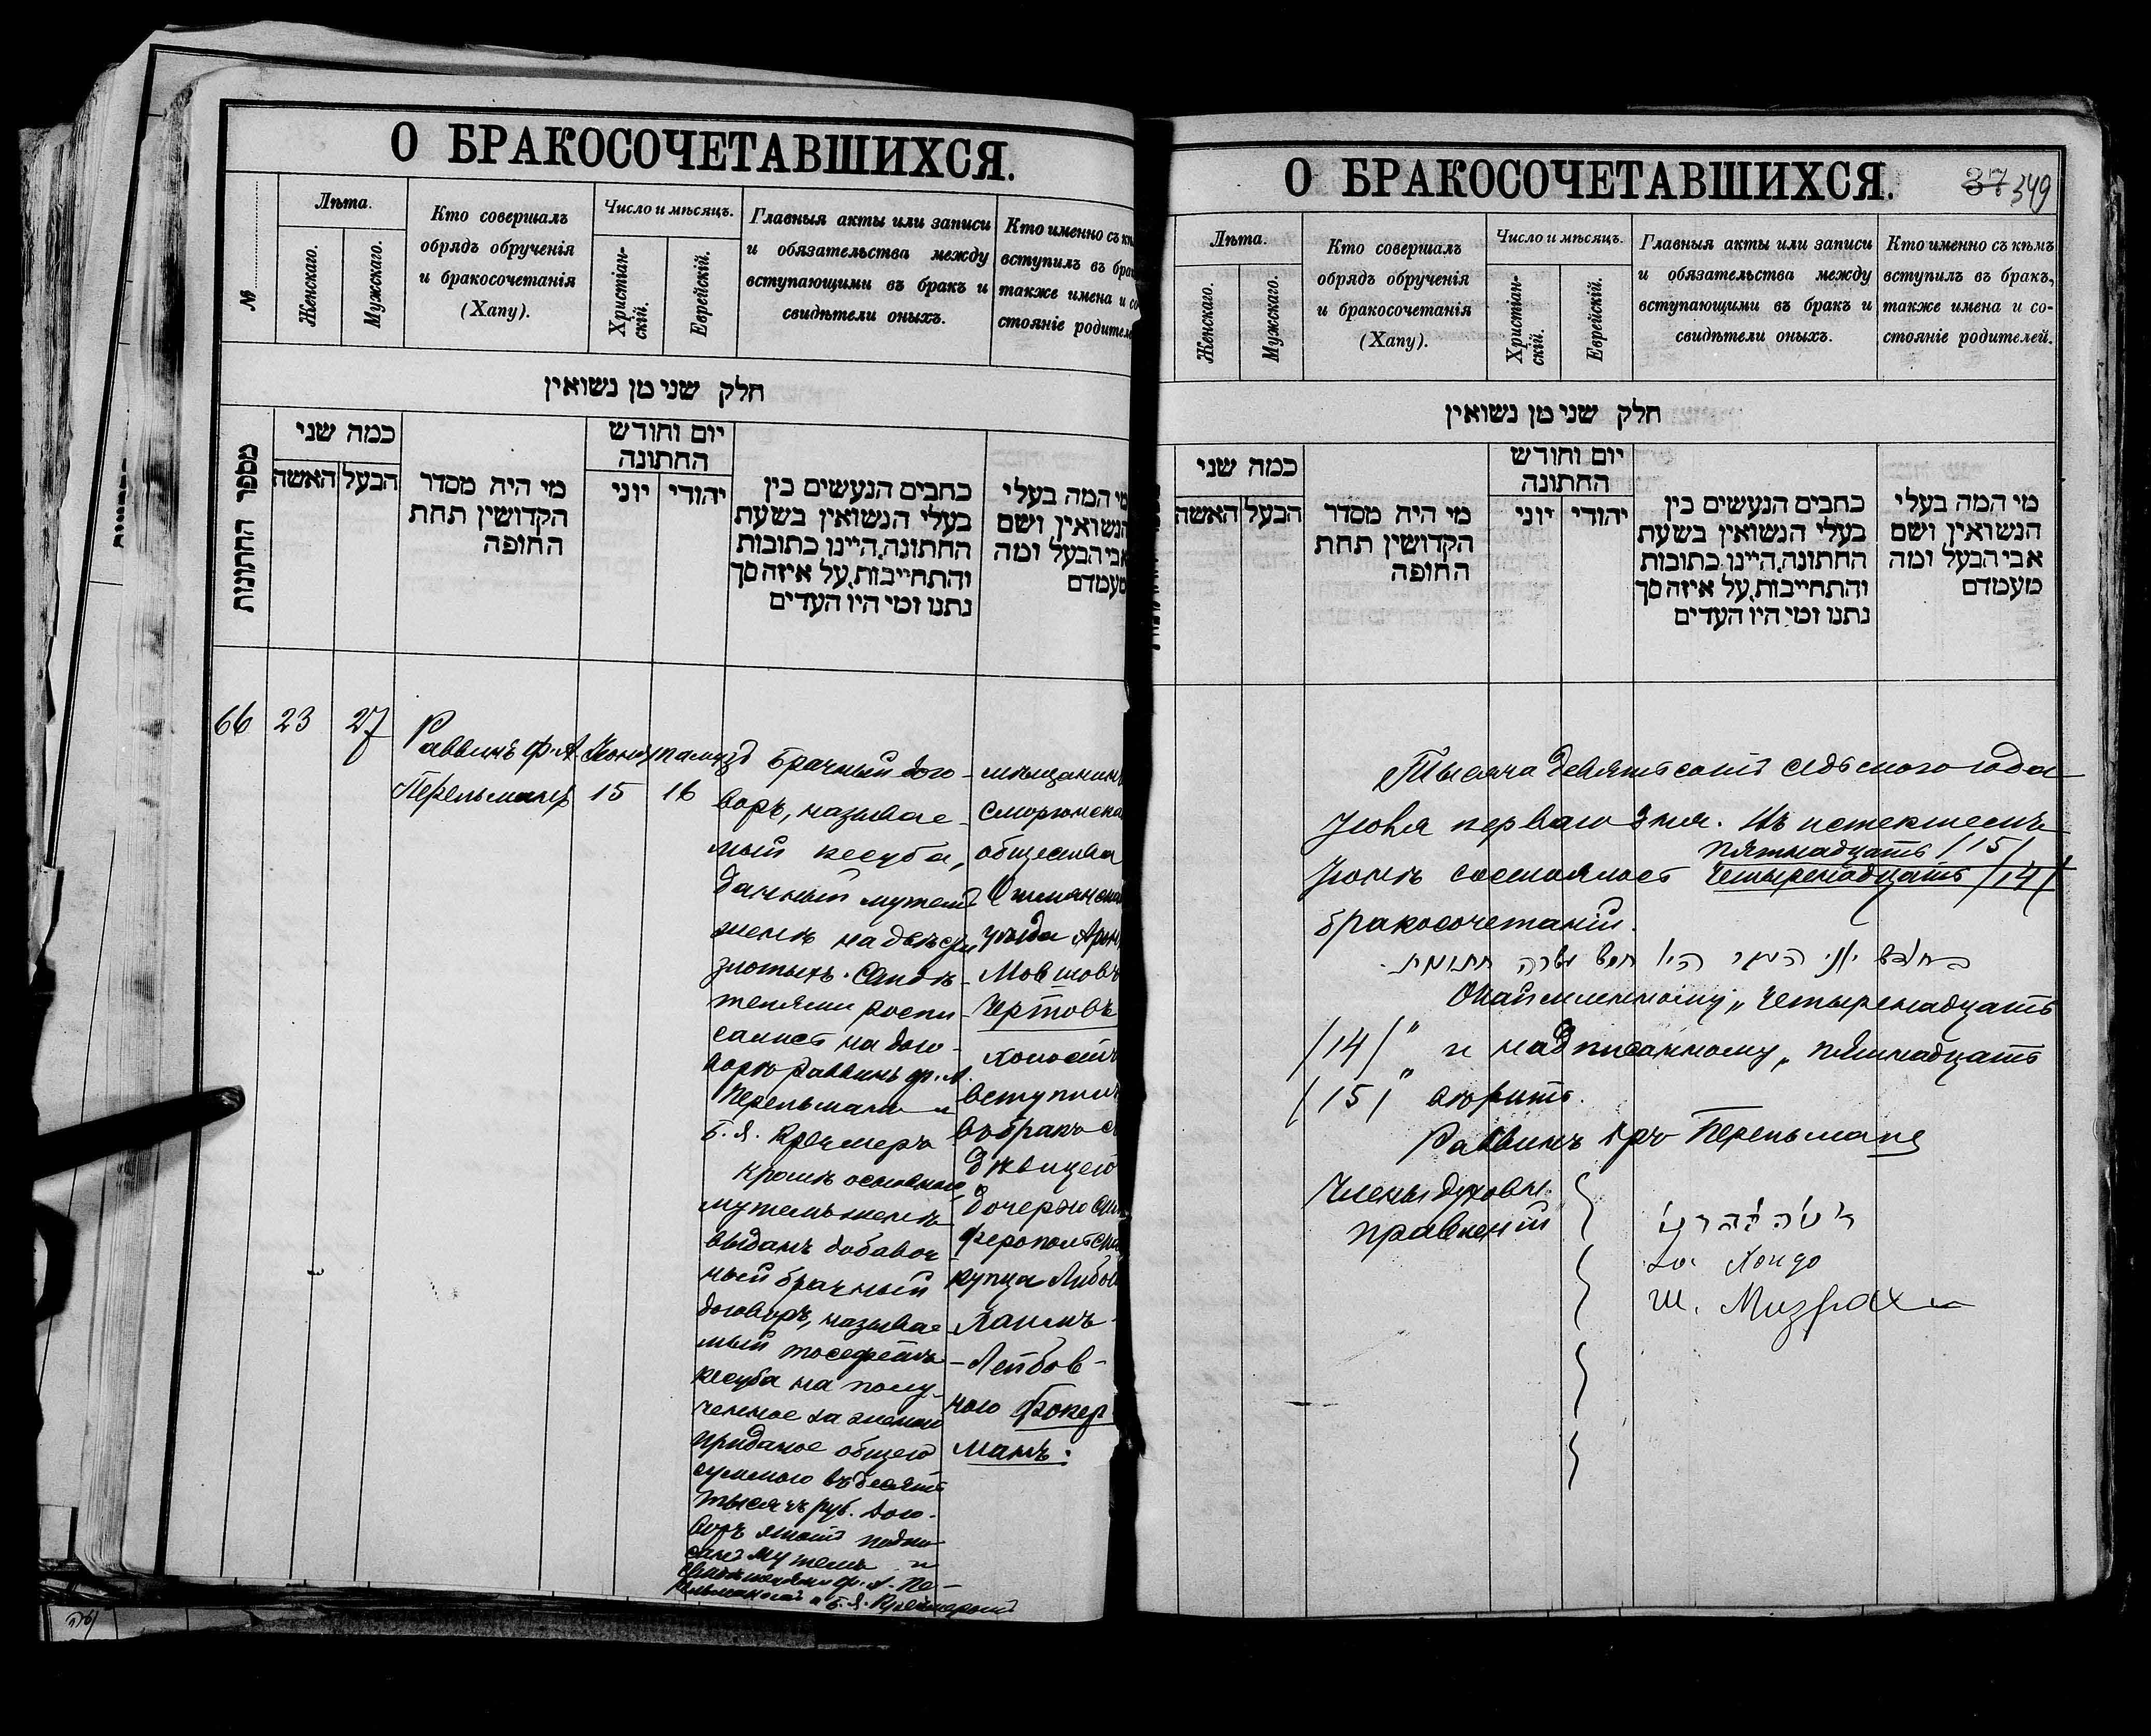 О БРАКОСОЧЕТАВШИХСЯ.
№
Лѣта.
Женскаго.
Мужскаго.
Кто совершалъ
обрядъ обрученія
и бракосочетанія
(Хапу).
Число и мѣсяцъ.
Христіан-
скій.
Еврейскій.
Главныя акты или записи
и обязательства между
вступающими въ бракъ и
свидѣтели оныхъ.
Кто именно съ
вступилъ въ
также имена и
стояніе
חלק שני מן נשואין
מספר החתונות
כמה שני
האשה
הבעל
מי היה מסדר
הקדושין תחת
החופה
יום וחודש
החתונה
יוני
יהודי
כתבים הנעשים בין
בעלי הנשואין בשעת
החתונה, היינו כתובות
והתחייבות, על איזה סך
נתנו ומי היו העדים
מי המה בעלי
הנשואין, ושם
אבי הבעל ומה
מעמדם
66 23 27
Раввинъ Ф. А.
Перельманъ
Іюнь
15
тамузъ
16
Брачный дого-
воръ, называе-
мый кесуба,
данный мужемъ
женѣ на двѣсти
злотыхъ. Свидѣ-
телями роспи-
сались на дого-
ворѣ раввинъ ф. А.
Перельманъ и
Б. Я. Креймеръ
Кромѣ
мужемъ женѣ
выданъ добавоч
ный брачный
договоръ, называе
мый тосефетъ
кесуба на полу-
ченное за женою
приданое общею
суммою въ десять
тысячъ руб. Дого-
воръ этотъ подпи
санъ мужемъ и
свидѣтелями ф. А. Пе-
рельманомъ и Б. Я. Креймеромъ
мѣщанинъ
Сморгонска
общества
Ошмянска
уѣзда Арон
Мовшовъ
Чертовъ
холостъ
вступилъ
въ бракъ съ
дѣвицею
дочерью Сим
феропольска
купца Любо
Хаимъ-
-Лейбов-
ною Фокер
манъ:
О БРАКОСОЧЕТАВШИХСЯ.
37 349
Лѣта.
Женскаго.
Мужскаго.
Кто совершалъ
обрядъ обрученія
и бракосочетанія
(Хапу).
Число и мѣсяцъ.
Христіан-
скій.
Еврейскій.
Главныя акты или записи
и обязательства между
вступающими въ бракъ и
свидѣтели оныхъ.
Кто именно съ кѣмъ
вступилъ въ бракъ,
также имена и со-
стояніе родителей.
חלק שני מן נשואין
כמה שני
האשה
הבעל
מי היה מסדר
הקדושין תחת
החופה
יום וחודש
החתונה
יוני
יהודי
כתבים הנעשים בין
בעלי הנשואין בשעת
החתונה, היינו כתובות
והתחייבות, על איזה סך
נתנו ומי היו העדים
מי המה בעלי
הנשואין, ושם
אבי הבעל ומה
מעמדם
Тысяча девятьсотъ седьмого года
Іюля перваго дня. Въ истекшемъ
пятнадцать /15/
Іюнѣ состоялось четырнадцать /14/
бракосочетаній.
בחודש יוני העבר היו חמש עשרה חתונות.
"четырнадцать
/14/" и надписанному "пятнадцать
/15/" вѣрить.
Раввинъ Перельманъ
Члены духовн.
правленій
Хондо
Ш. Мизрахи